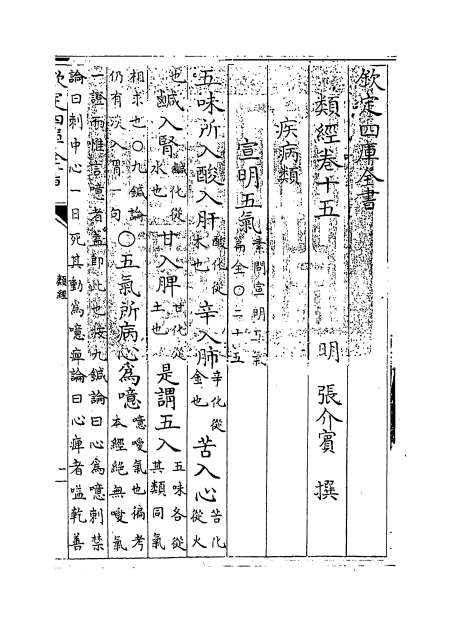 欽定四庫全書
類經卷十五
明 張介賓 撰
疾病類
宣明五氣
素問宣明五氣
篇全〇二十五
五味所入酸入肝
酸化從
木也
辛入肺
辛化從
金也
苦入心
苦化
從火
也
鹹入腎
鹹化從
水也
甘入脾
甘化從
土也
是謂五入
五味各從
其類同氣
相求也〇九鍼論
仍有淡入胃一句
〇五氣所病心為噫
噫噯氣也徧考
本經絕無噯氣
一證而惟言噫者蓋即此也按九鍼論曰心為噫刺禁
論曰刺中心一日死其動為噫痺論曰心痺者嗌乾善
欽定四庫全書
類經
一